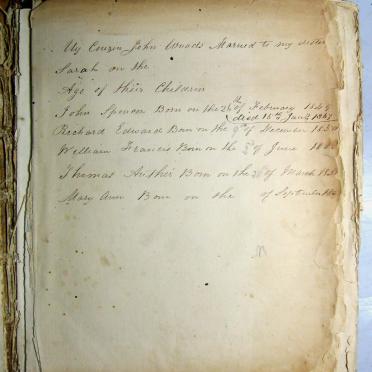 My Couzin John Woods Married to my sister
Sarah on the
Age of their Children
John Spencer Born on the 26th of February
died 15th June
Richard Edward Born on the 9th of December
William Francis Born on the of June
Thomas Arther Born on the of March
Mary Ann Born on the of September